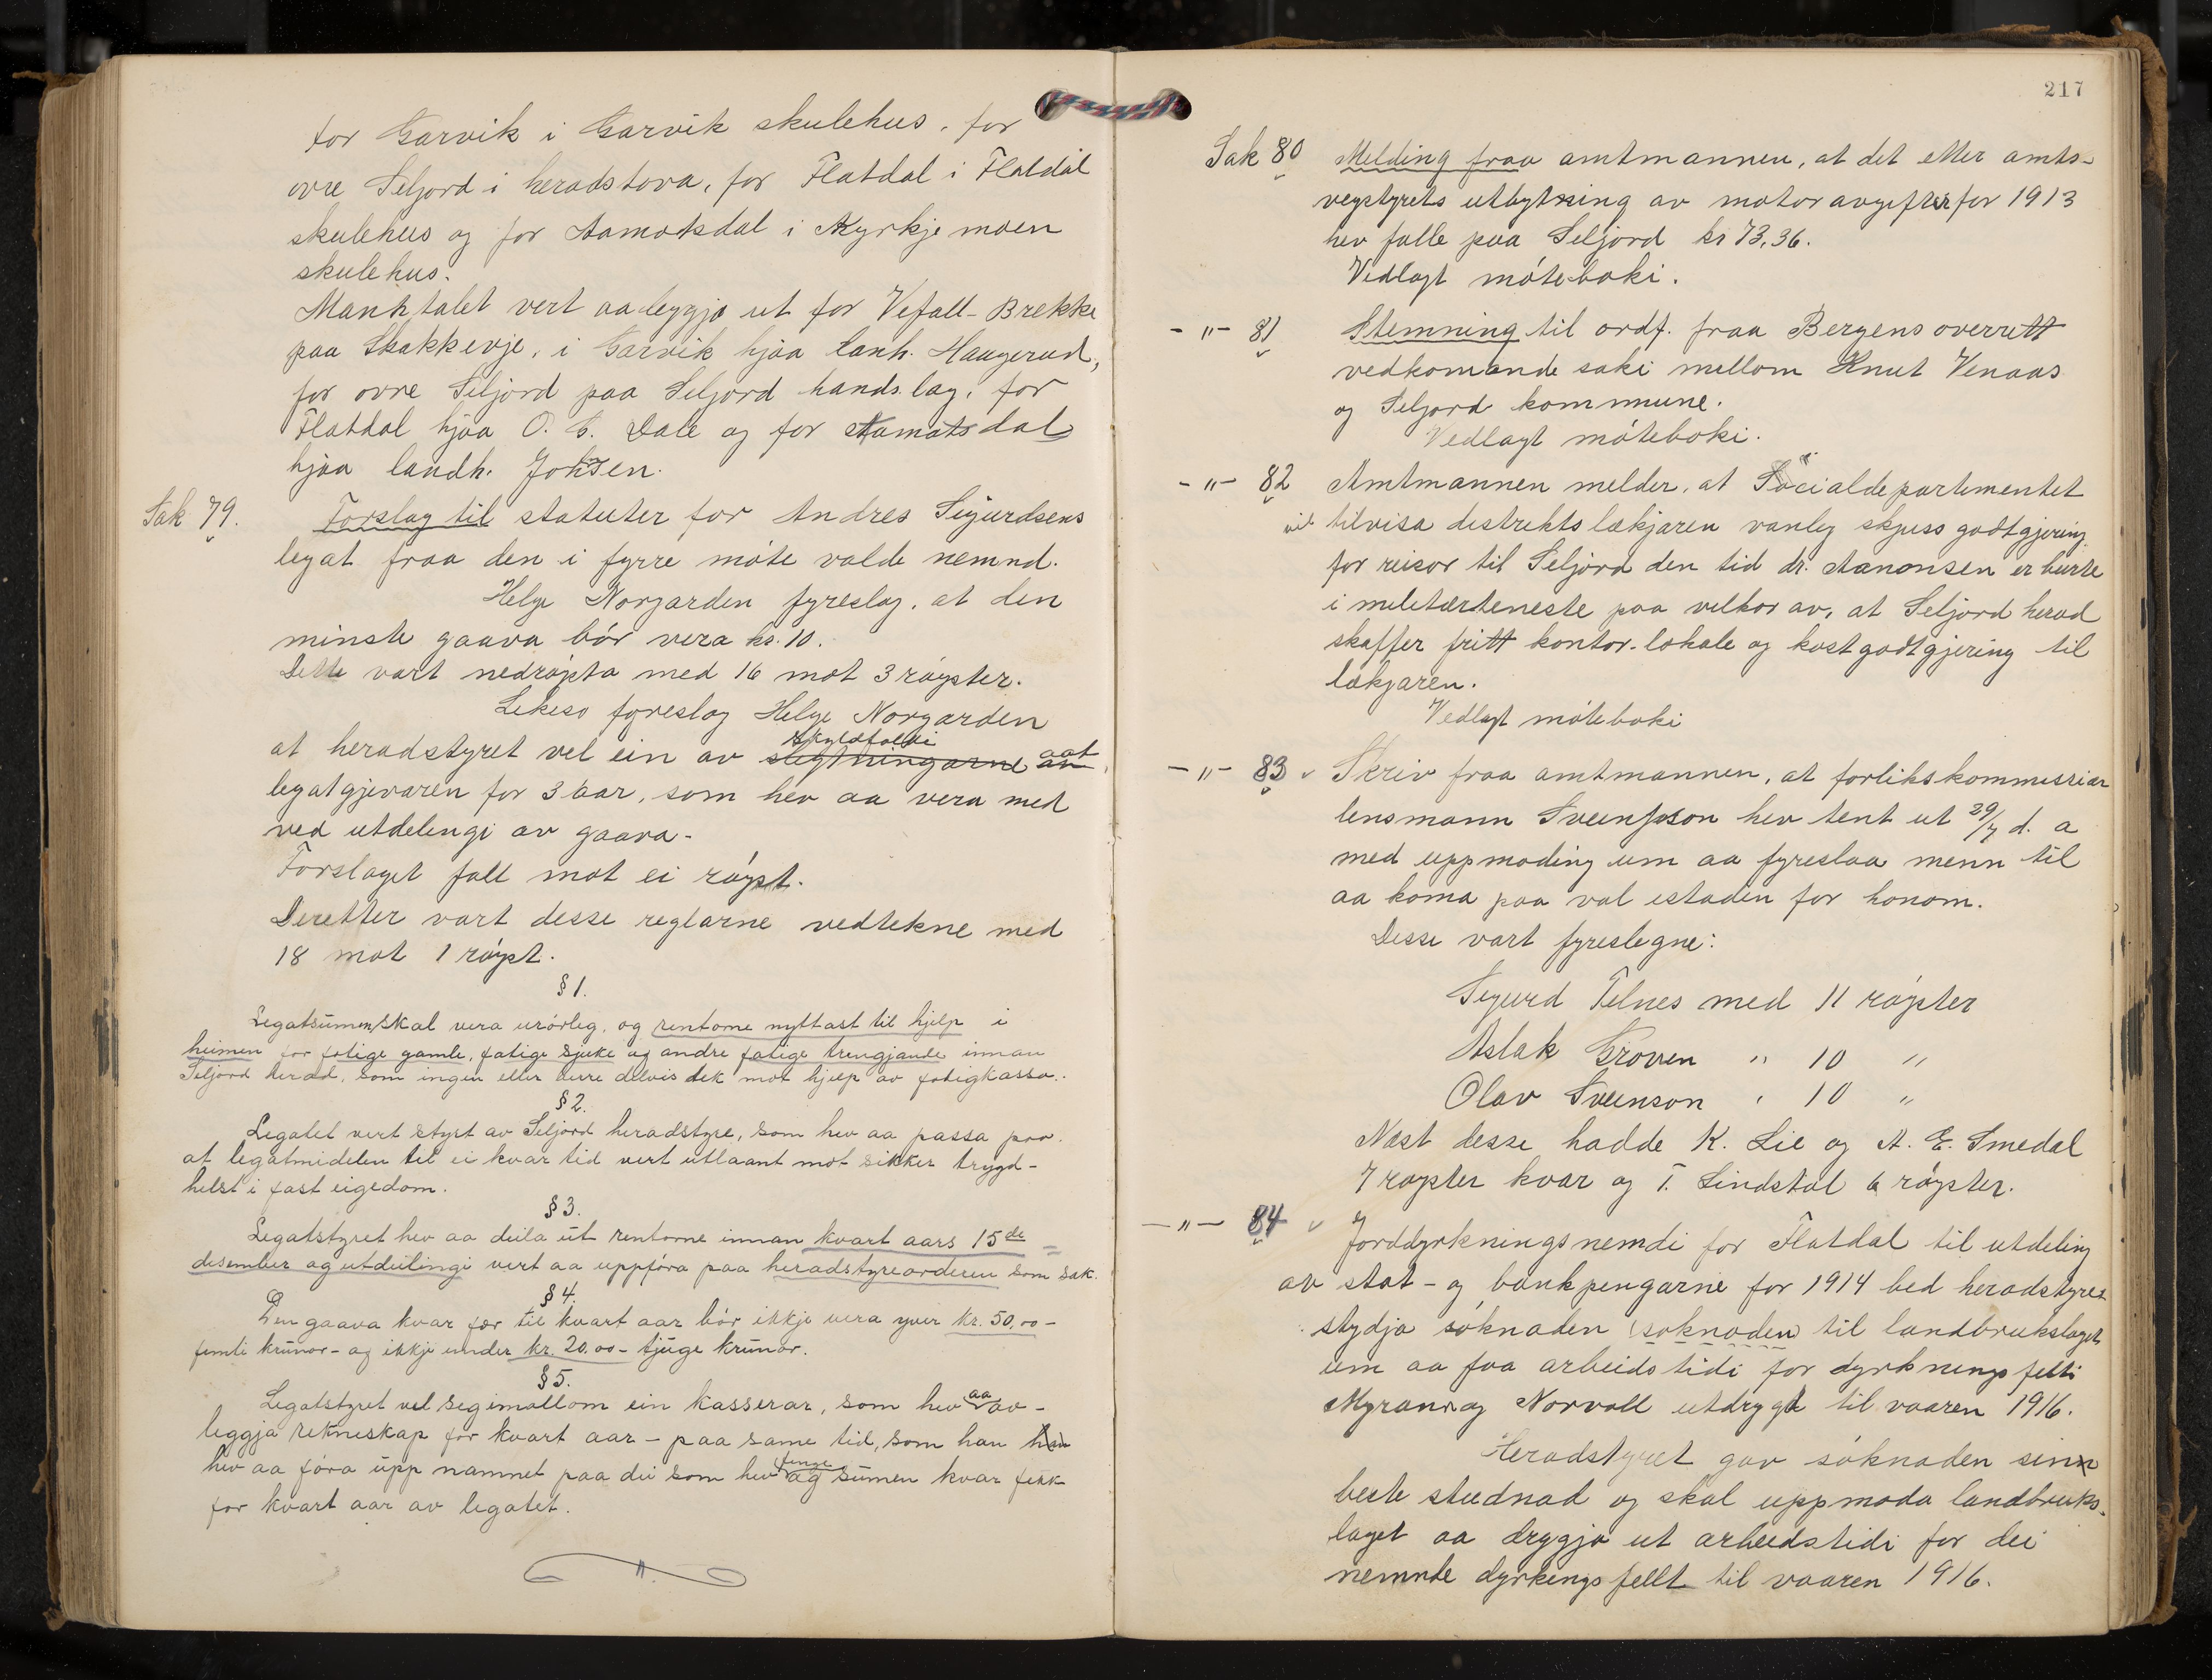 for Garvik i Garvik skulehus, for
øvre Seljord i heradstova, for Flatdal i Flatdal
skulehus og for Aamotsdal i Kyrkjemoen
skulehus.
Manntalet vert aa leggja ut for Vefall-Brekke
paa Skakkevje, i Garvik hjaa lanh. Haugerud,
for øvre Seljord paa Seljord handslag, for
Flatdal hjaa O. G. Dale og for Aamotsdal
hjaa landh. Johsen.
Sak 79. Forslag til statuter for Andres Sigurdsens
legat fraa den i fyrre møte valde nemnd.
Helge Norgarden fyreslog, at den
minste gaava bør vera kr. 10.
Dette vart nedrøysta med 16 mot 3 røyster.
Likeso fyreslog Helge Norgarden
skyldfolki aat
at heradstyret vel ein av slegtningarne
legatgjevaren for 3 aar, som hev aa vera med
ved utdelingi av gaava-
Forslaget fall mot ei røyst.
Deretter vart desse reglarne vedtekne med
18 mot 1 røyst.
§ 1.
Legatsumen skal vera urørleg, og rentorne nyttast til hjelp i
heimen for fatige gamle, fatige sjuke og andre fatige trengjande innan
Seljord herad, som ingen eller berre delvis dek mot hjelp av fatigkassa.
§ 2.
Legatet vert styrt av Seljord heradstyre, som hev aa passa paa.
at legatmidelen til ei kvar tid vert utlaant mot sikker trygd-
helst i fast eigedom.
§ 3.
Legatstyret hev aa deila ut rentorne innan kvart aars 15de
desember og utdeilingi vert aa uppføra paa heradstyreorderen som sak.
§ 4.
Den gaava kvar fær til kvart aar bør ikkje vera yver kr. 50,00-
femti krunor- og ikkje under kr. 20.00- tjuge krunor.
§ 5.
Legatstyret vel segimøllom ein kasserar, som hev aa av-
leggja rekneskap for kvart aar - paa same tid, som han
hev aa føra upp namnet paa dei som hev fenge og sumen kvar fekk
for kvart aar av legatet.
217
Sak 80 Melding fraa amtmannen, at det etter amts-
vegstyrets utbytning av motoravgifter for 1913
hev falle paa Seljord kr 73,36.
Vedlagt møteboki.
-"- 81 Stemning til ordf. fraa Bergens overrett
vedkomande saki mellom Knut Venaas
og Seljord kommune.
Vedlagt møteboki.
-"- 82 Amtmannen melder, at Socialdepartementet
vil tilvisa distriktslækjaren vanleg skyss godtgjering
for reisor til Seljord den tid dr. Aanonsen er burte
i militærteneste paa vilkor av, at Seljord herad
skaffer fritt kontor-lokale og kostgodtgjering til
lækjaren.
Vedlagt møteboki
-"- 83 Skriv fraa amtmannen, at forlikskommissiær
lensmann Sveinsson hev tent ut 29/7 d. a
med uppmoding um aa fyreslaa menn til
aa koma paa val istaden for honom.
Desse vart fyreslegne:
Sigurd Telnes med 11 røyster
Aslak Groven " 10 "
Olav Sveenson " 10 "
Næst desse hadde K. Lie og A. E. Smedal
7 røyster kvar og T. Lindstøl 6 røyster.
-"- 84 Jorddyrkningsnemdi for Flatdal til utdeling
av stat- og bankpengarne for 1914 bed heradstyret
stydja søknaden (søknaden) til landbrukslaget
um aa faa arbeidstidi for dyrkningsfelti
Myran og Norvoll utdrygt til vaaren 1916.
Heradstyret gav søknaden sin
beste studnad og skal uppmoda landbruks-
laget aa drygja ut arbeidstidi for dei
nemnde dyrkingsfellt til vaaren 1916.